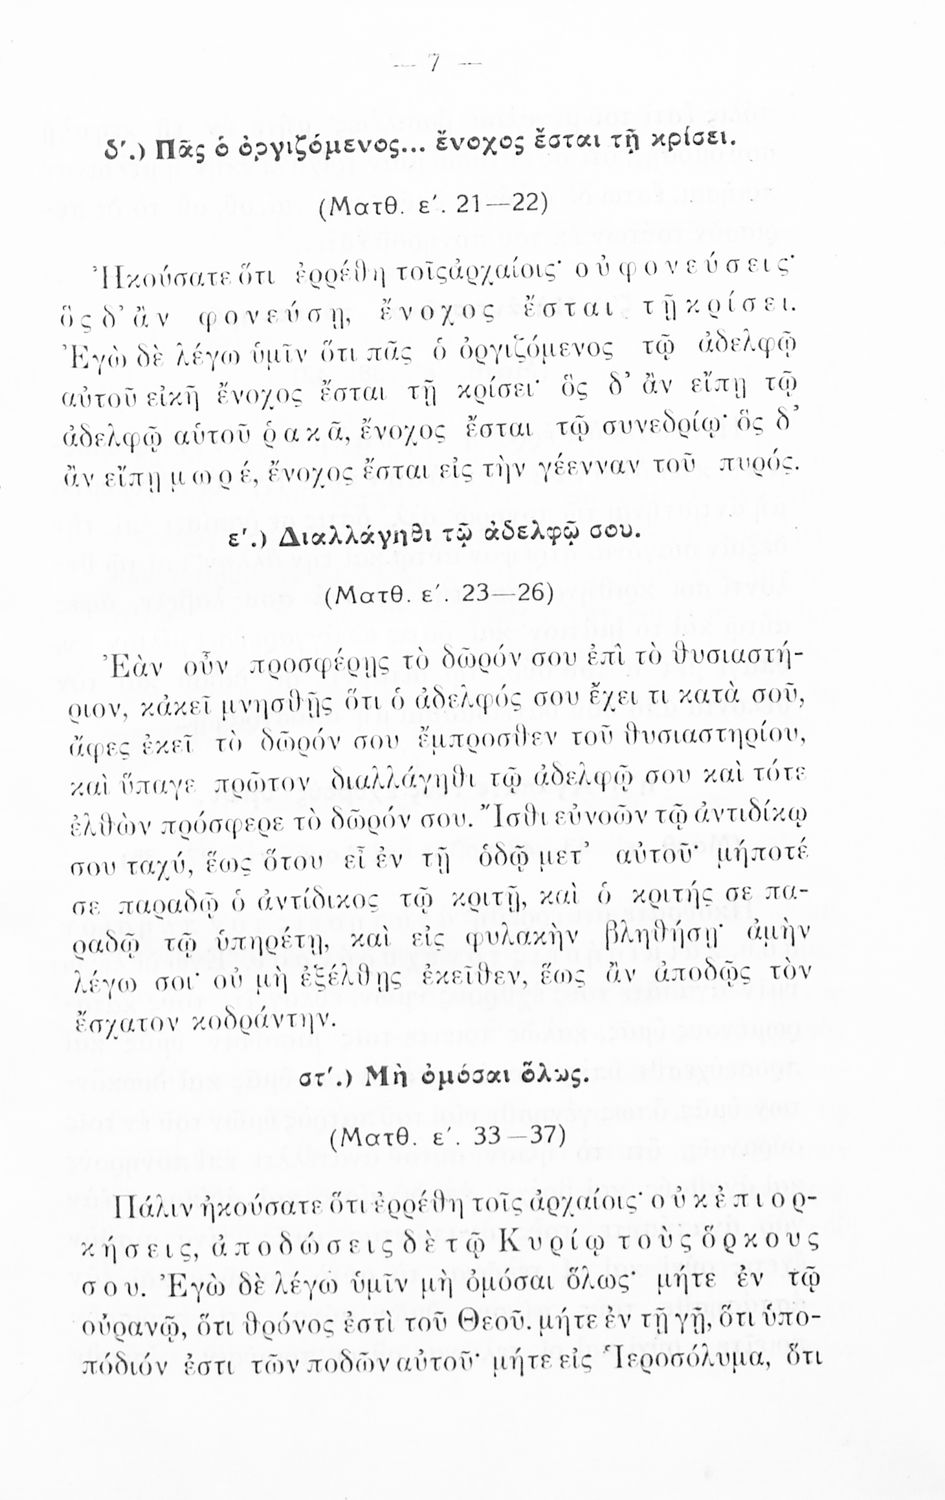 — 7 —
δ'.) Πᾶς ὁ ὀργιζόμενος... ἔνοχος ἔσται τῇ κρίσει.
(Ματθ. ε'. 21—22)
Ἠκούσατε ὅτι ἐρρέθη τοῖς ἀρχαίοις· οὐ φονεύσεις·
ὃς δ' ἂν φονεύσῃ, ἔνοχος ἔσται τῇ κρίσει.
Ἐγὼ δὲ λέγω ὑμῖν ὅτι πᾶς ὁ ὀργιζόμενος τῷ ἀδελφῷ
αὐτοῦ εἰκῆ ἔνοχος ἔσται τῇ κρίσει· ὃς δ' ἂν εἴπῃ τῷ
ἀδελφῷ αὐτοῦ ῥακᾶ, ἔνοχος ἔσται τῷ συνεδρίῳ· ὃς δ'
ἂν εἴπῃ μωρέ, ἔνοχος ἔσται εἰς τὴν γέενναν τοῦ πυρός.
ε'.) Διαλλάγηθι τῷ ἀδελφῷ σου.
(Ματθ. ε'. 23—26)
Ἐὰν οὖν προσφέρῃς τὸ δῶρόν σου ἐπὶ τὸ θυσιαστή-
ριον, κἀκεῖ μνησθῇς ὅτι ὁ ἀδελφός σου ἔχει τι κατὰ σοῦ,
ἄφες ἐκεῖ τὸ δῶρόν σου ἔμπροσθεν τοῦ θυσιαστηρίου,
καὶ ὕπαγε πρῶτον διαλλάγηθι τῷ ἀδελφῷ σου καὶ τότε
ἐλθὼν πρόσφερε τὸ δῶρόν σου. Ἴσθι εὐνοῶν τῷ ἀντιδίκῳ
σου ταχύ, ἕως ὅτου εἶ ἐν τῇ ὁδῷ μετ' αὐτοῦ· μήποτέ
σε παραδῷ ὁ ἀντίδικος τῷ κριτῇ, καὶ ὁ κριτής σε πα-
ραδῷ τῷ ὑπηρέτῃ, καὶ εἰς φυλακὴν βληθήσῃ· ἀμὴν
λέγω σοι· οὐ μὴ ἐξέλθῃς ἐκεῖθεν, ἕως ἂν ἀποδῷς τὸν
ἔσχατον κοδράντην.
στ'.) Μὴ ὀμόσαι ὅλως.
(Ματθ. ε'. 33—37)
Πάλιν ἠκούσατε ὅτι ἐρρέθη τοῖς ἀρχαίοις· οὐκ ἐπιορ-
κήσεις, ἀποδώσεις δὲ τῷ Κυρίῳ τοὺς ὅρκους
σου. Ἐγὼ δὲ λέγω ὑμῖν μὴ ὀμόσαι ὅλως· μήτε ἐν τῷ
οὐρανῷ, ὅτι θρόνος ἐστὶ τοῦ Θεοῦ. μήτε ἐν τῇ γῇ, ὅτι ὑπο-
πόδιόν ἐστι τῶν ποδῶν αὐτοῦ· μήτε εἰς Ἱεροσόλυμα, ὅτι